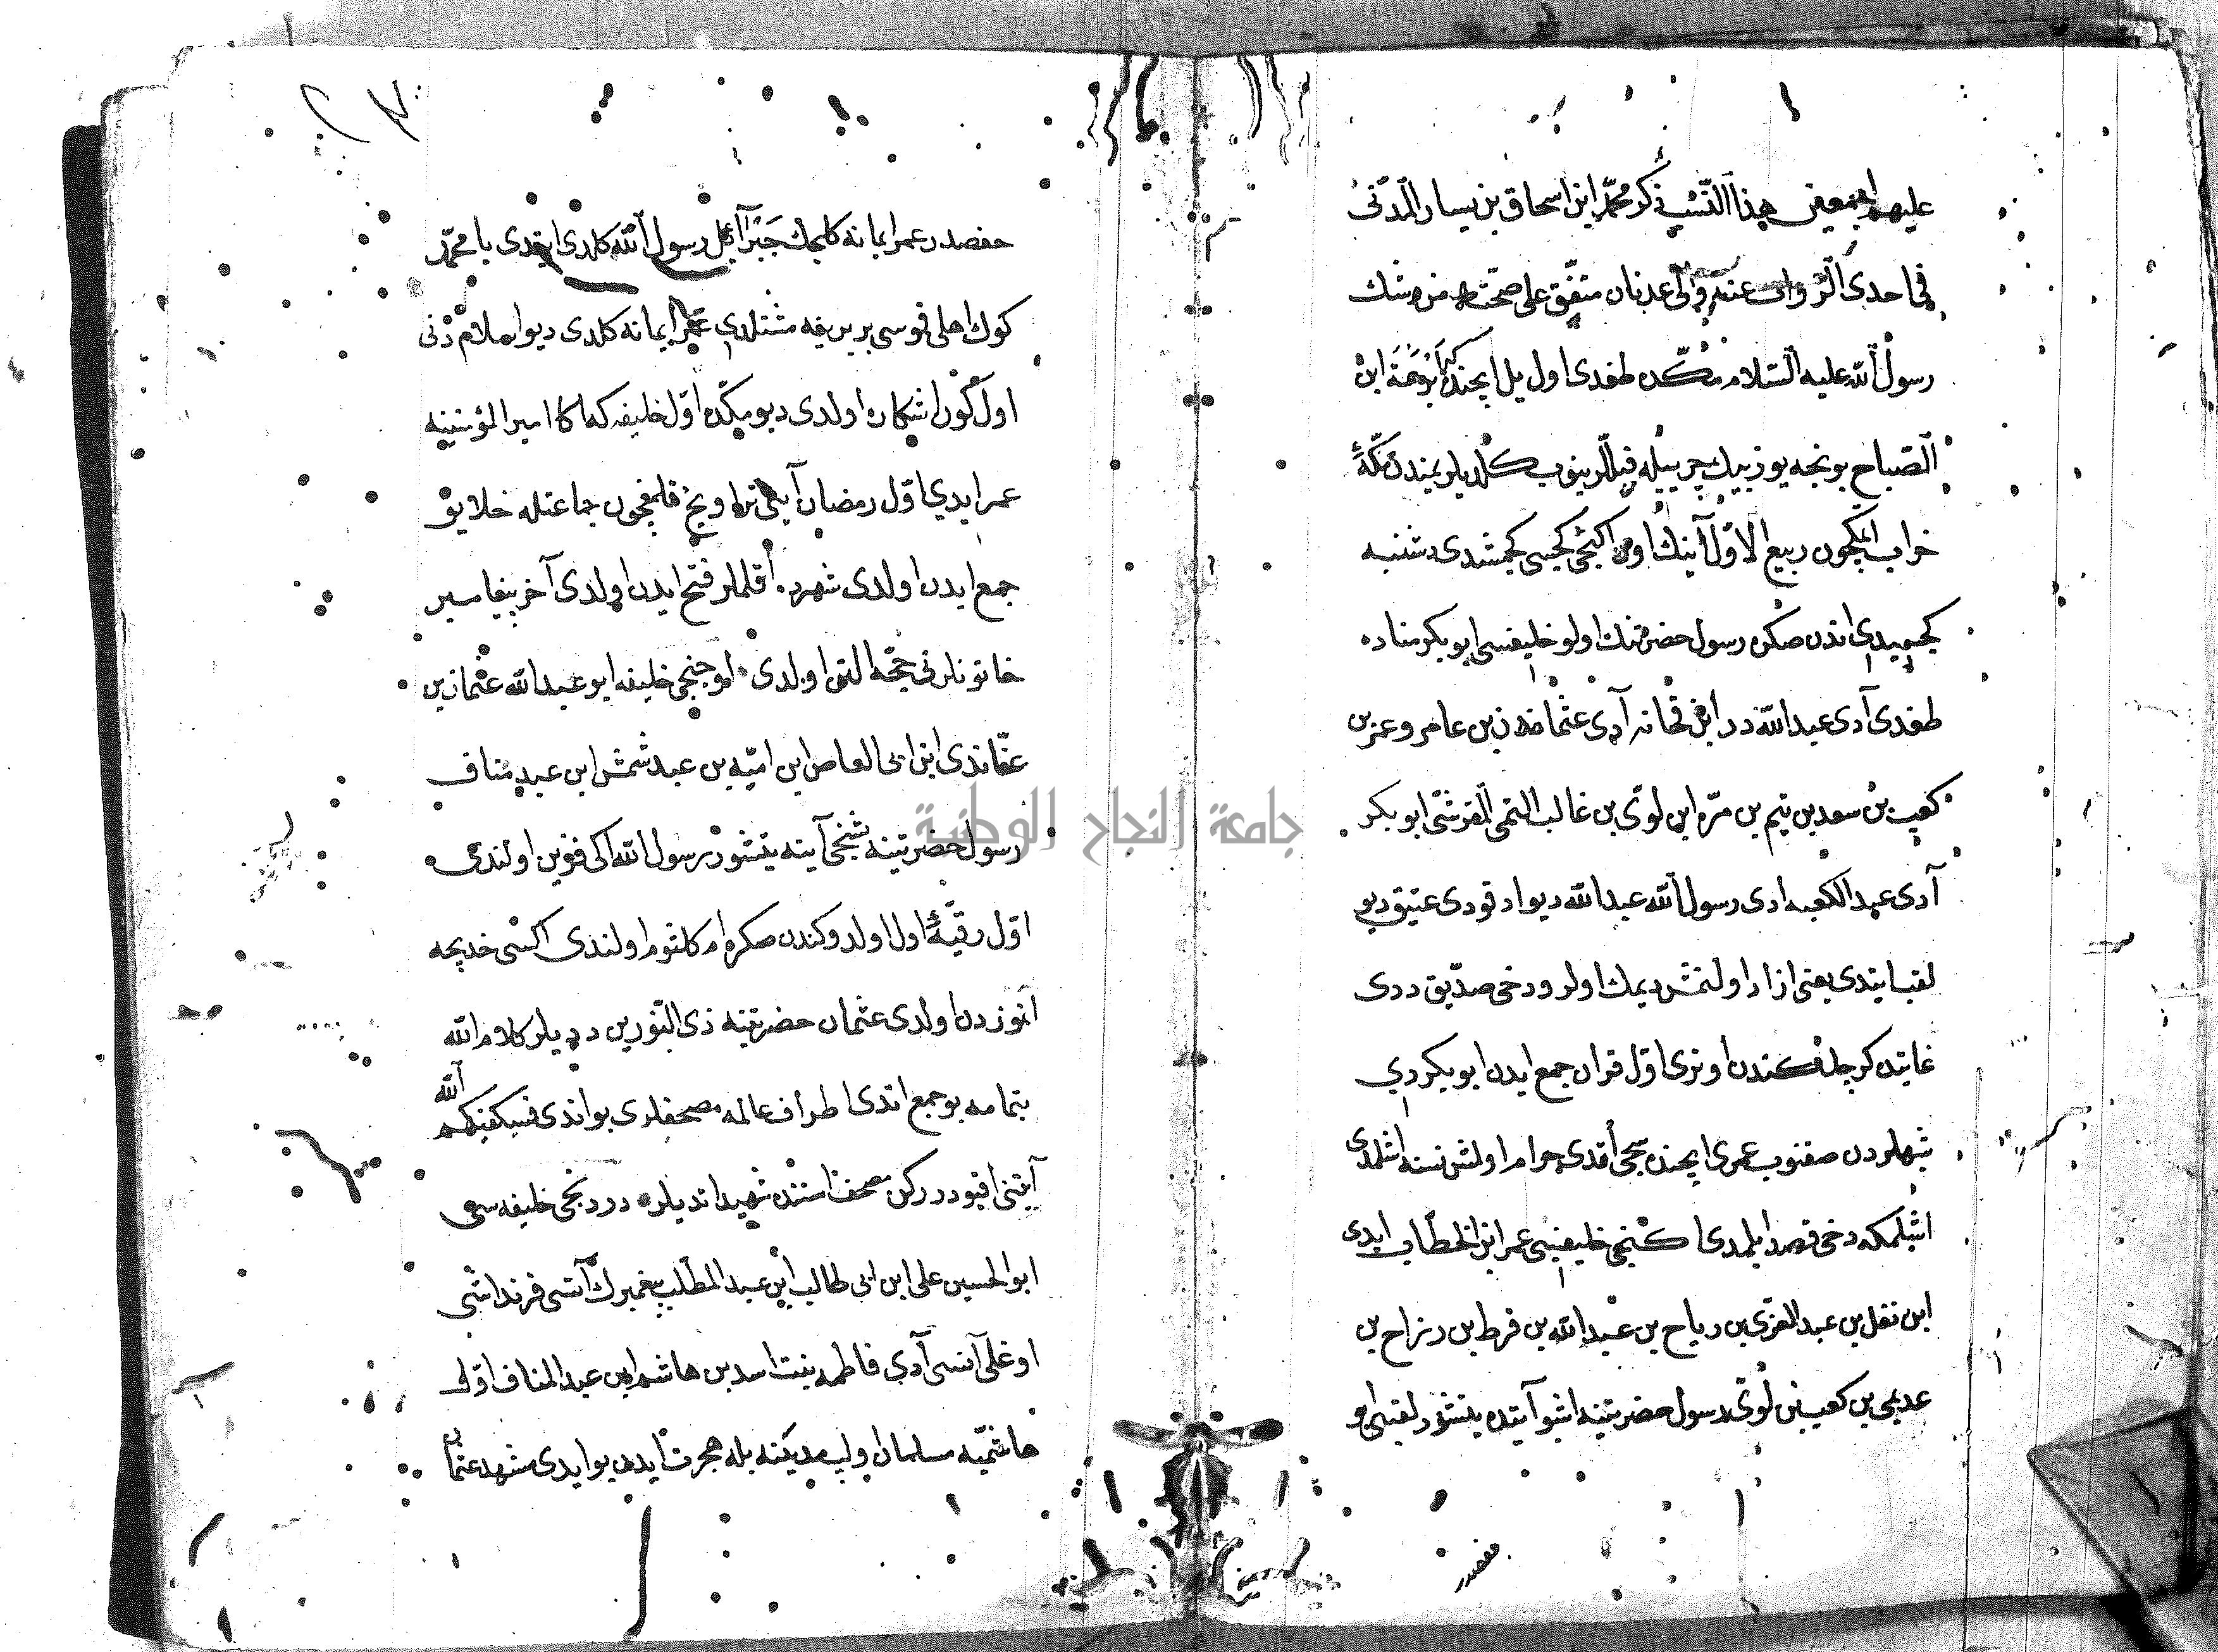 عليهم اجمعين هذا النسب ذكر محمّد ابن اسحاق بن يسار المدنى
فى احدى الروايات عنه والى عدنان متفق على صحته من شك
رسول الله عليه السلام مكّده طغدى اول يل ايچنده ابرهة ابن
الصّباح بونجه يوز بيك چريبيله فيللر بنوب كلديلر يمندن مكّة
خراب ايلمكچون ربيع الاوّل آينك اون اكنجى كيجسى كچمشدى دشنبه
كيجسيدى اندن صكره رسول حضرتنك اولو خليفسى ابو بكر مناده
طغدى آدى عبد الله در ابن قحافه آدى عثمان در بن عامر وعمر بن
كعب بن سعد بن تيم بن مرّه ابن لوى بن غالب التيمى القرشى ابو بكر
آدى عبد الكعبه ادى رسول الله عبد الله ديو اد قودى عتيق ديو
لقب ايتدى يعنى ازاد اولنمش ديمك اولر ودخى صدّيق ددى
غايتده كرچلكندن اوترى اوّل قران جمع ايدن ابو بكردى
شبهلردن صقنوب عمرى ايچنده سجى اقدى حرام اولمش نسنه اشلمدى
اشلمكه دخى قصد ايلمدى اكنجى خليفسى عمر ابن الخطاب ايدى
ابن نفل بن عبد العزّى بن رياح بن عبد الله بن قرط بن رزاح بن
عدى بن كعب بن لوى رسول حضرتينه اشبو آيتده يتشور لقبى ابو
حفصدر
حفصدر عمر ايمانه كليجك جبرآئل رسول الله كلدى ايتدى يا محمّد
كوك اهلى قوسى بربريغه مشتلدى عمر ايمانه كلدى ديو اسلام دنى
اول كون اشكاره اولدى ديو مكّده اوّل خليفه كه اكا امير المؤمنينه
عمر ايدى اوّل رمضان آينى تراويح قلمغچون جماعتله خلايق
جمع ايدن اولدى شهرده اقلملر فتح ايدن اولدى آخر پيغامبر
خاتونلرنى حجّه التن اولدى اوجنجى خليفه ابو عبد الله عثمان بن
عفّاندى ابن ابى العاص ابن اميّه بن عبد شمس ابن عبد مناف
رسول حضرتينه بشنجى آيته يتشور رسول الله اكى قزين اولندى
اوّل رقيّة اول اولدوكندن صكره ام كلثوم اولندى اكسى خديجه
آنوزدن اولدى عثمان حضرتينه ذى النورين دديلر كلام الله
بتمامه بو جمع اتدى اطراف عالمه مصحفلرى بو اندى فسيكفيكهم الله
آيتنى اقيودرركن مصحف استنده شهيد اتديلر دردنجى خليفه سى
ابو الحسين على ابن ابى طالب ابن عبد المطّلب پيغمبرك آتسى قرنداشى
اوغلى آنسى آدى فاطمه بنت اسد بن هاشم ابن عبد المناف اوّل
هاشميّه مسلمان اولب مدينه بله هجرت ايدن بو ايدى شهد عثمان
جامعة النجاح الوطنية